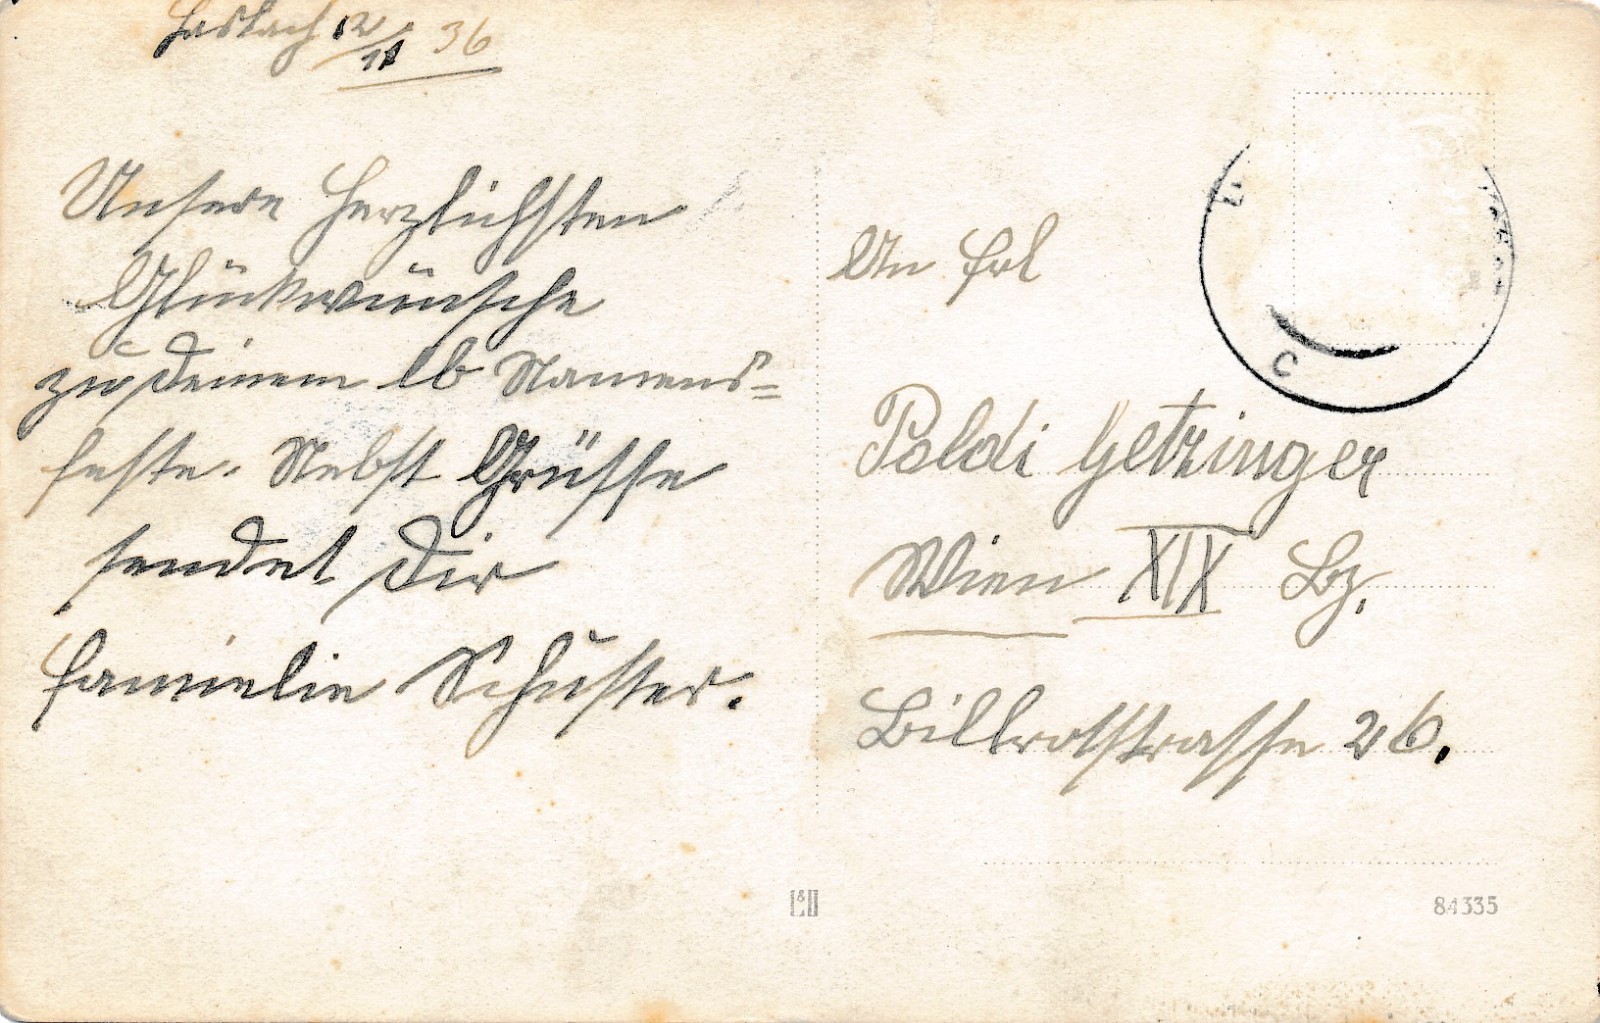 12/11 36
Unsere herzlichsten
Glückwünsche
zu Deinem lb Namens=
feste. Nebst Grüsse
sendet Dir
Familie Schuster.
An Frl
Poldi Getzinger
Wien XIX Bz.
Billrotstrasse 26.
84335